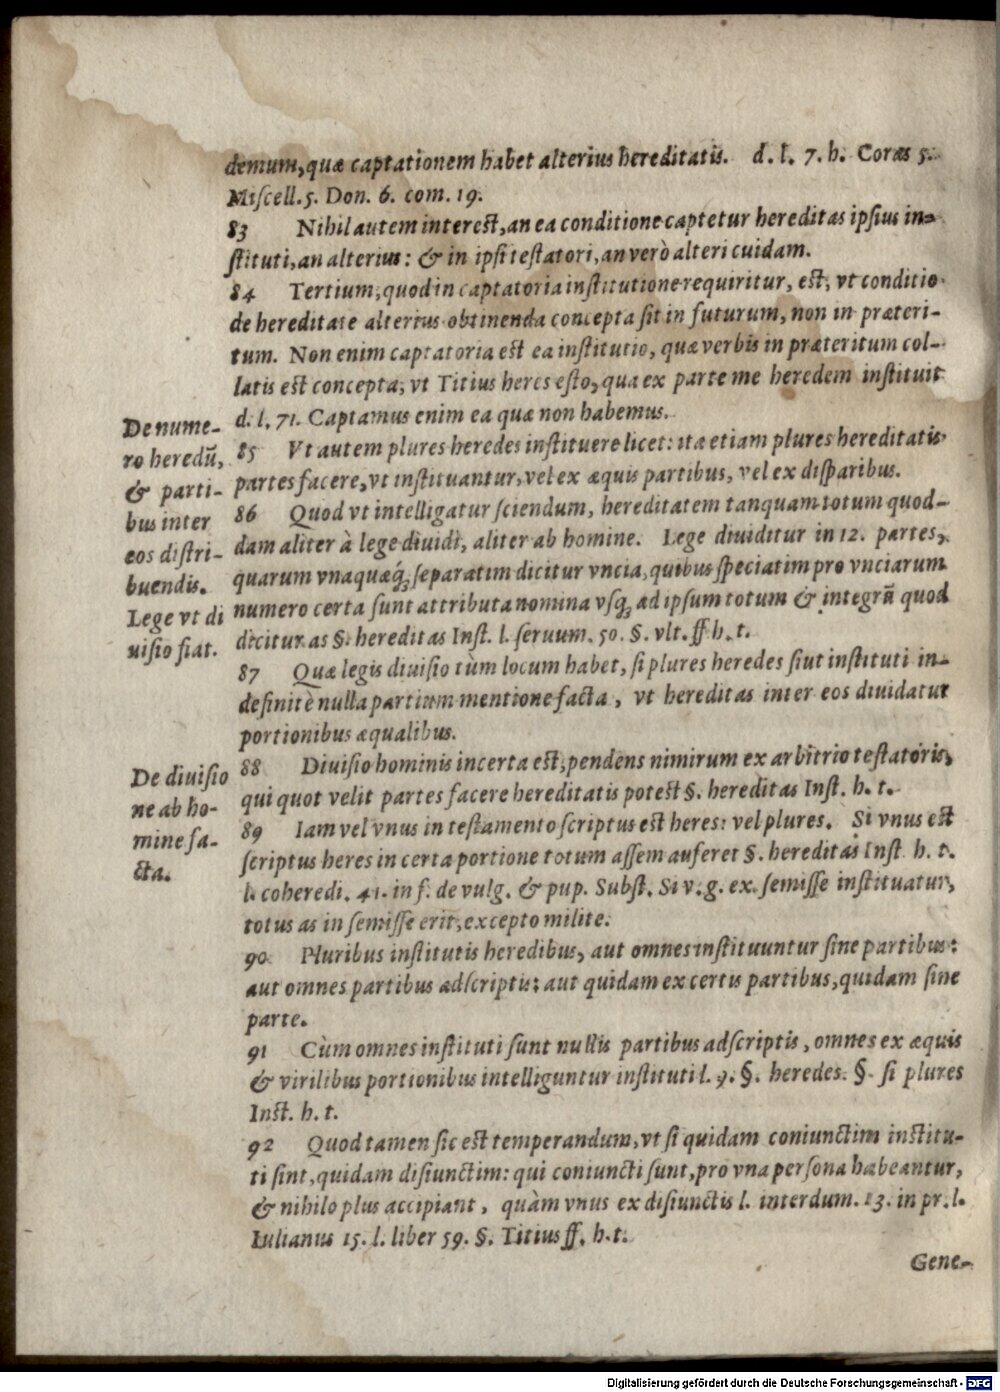 demum, quæ captationem habet alterius hereditatis. d. l. 7. h. Coras 5.
Miſcell. 5. Don. 6. com. 19.
83 Nihil autem intereſt, an ea conditione captetur hereditas ipſius in-
ſtituti, an alterius: & in ipſi teſtatori, an verò alteri cuidam.
84 Tertium, quod in captatoria inſtitutione requiritur, eſt, vt conditio
de hereditate alterius obtinenda concepta ſit in futurum, non in præteri-
tum. Non enim captatoria eſt ea inſtitutio, quæ verbis in præteritum col-
latis eſt concepta, vt Titius heres eſto, qua ex parte me heredem inſtituit
d. l. 71. Captamus enim ea quæ non habemus.
De nume-
ro heredũ,
& parti-
bus inter
eos diſtri-
buendis.
Lege vt di
uiſio fiat.
85 Vt autem plures heredes inſtituere licet: ita etiam plures hereditatis
partes facere, vt inſtituantur, vel ex æquis partibus, vel ex diſparibus.
86 Quod vt intelligatur ſciendum, hereditatem tanquam totum quod-
dam aliter à lege diuidi, aliter ab homine. Lege diuiditur in 12. partes,
quarum vnaquæq́; ſeparatim dicitur vncia, quibus ſpeciatim pro vnciarum
numero certa ſunt attributa nomina vſq; ad ipſum totum & integrũ quod
dicitur as §. hereditas Inſt. l. ſeruum. 50. §. vlt. ff h. t.
87 Quæ legis diuiſio tùm locum habet, ſi plures heredes ſiut inſtituti in-
definitè nulla partium mentione facta, vt hereditas inter eos diuidatur
portionibus æqualibus.
De diuiſio
ne ab ho-
mine fa-
cta.
88 Diuiſio hominis incerta eſt, pendens nimirum ex arbitrio teſtatoris,
qui quot velit partes facere hereditatis poteſt §. hereditas Inſt. h. t.
89 Iam vel vnus in teſtamento ſcriptus eſt heres: vel plures. Si vnus eſt
ſcriptus heres in certa portione totum aſſem auferet §. hereditas Inſt. h. t.
l. coheredi. 41. in f. de vulg. & pup. Subſt. Si v. g. ex ſemiſſe inſtituatur,
totus as in ſemiſſe erit, excepto milite.
90 Pluribus inſtitutis heredibus, aut omnes inſtituuntur ſine partibus:
aut omnes partibus adſcriptis: aut quidam ex certis partibus, quidam ſine
parte.
91 Cùm omnes inſtituti ſunt nullis partibus adſcriptis, omnes ex æquis
& virilibus portionibus intelliguntur inſtituti l. 9. §. heredes. §. ſi plures
Inſt. h. t.
92 Quod tamen ſic eſt temperandum, vt ſi quidam coniunctim inſtitu-
ti ſint, quidam diſiunctim: qui coniuncti ſunt, pro vna perſona habeantur,
& nihilo plus accipiant, quàm vnus ex diſiunctis l. interdum. 13. in pr. l.
Iulianus 15. l. liber 59. §. Titius ff. h. t.
Gene-
Digitalisierung gefördert durch die Deutsche Forschungsgemeinschaft - DFG